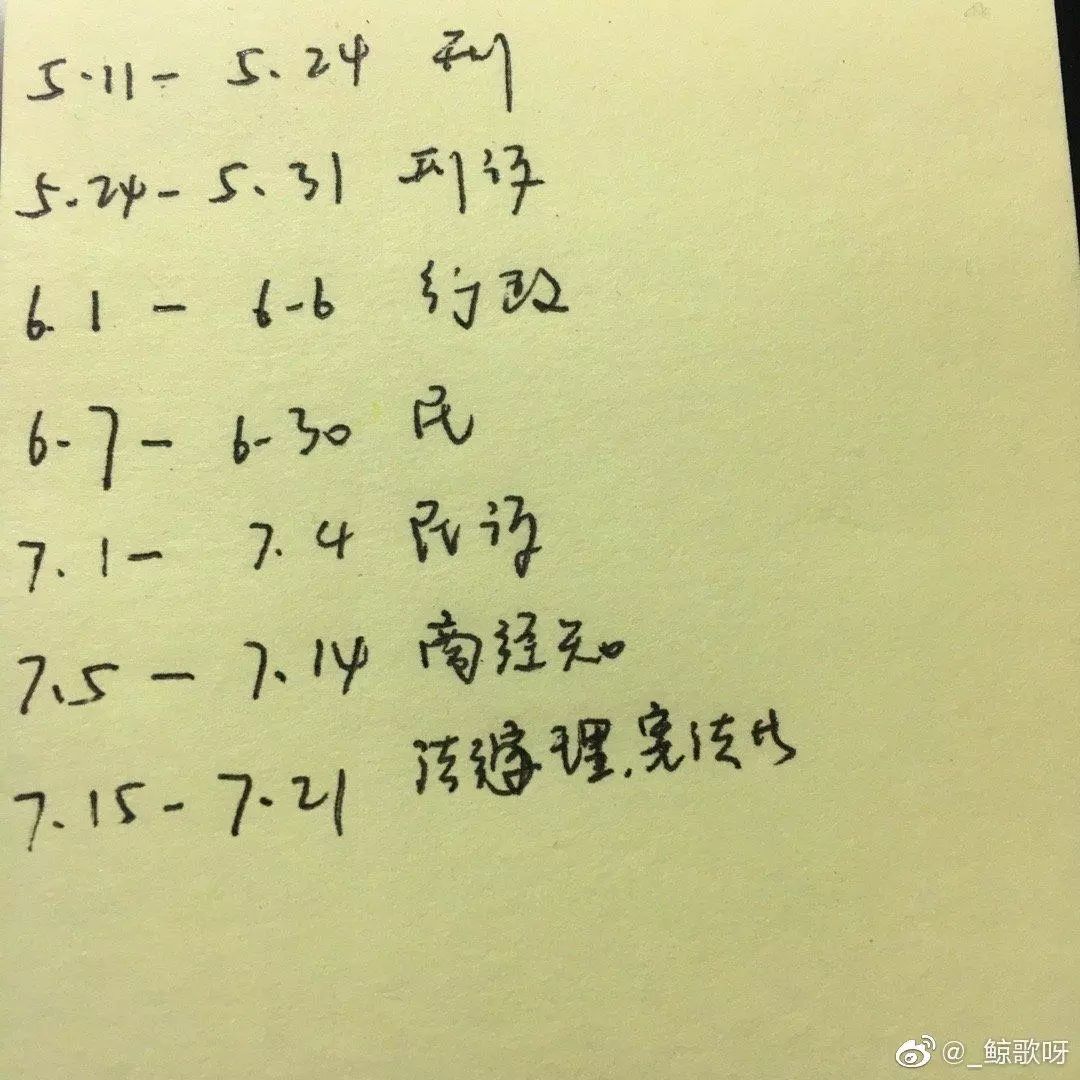 5.11- 5.24 刑
5.24- 5.31 刑诉
6.1 - 6-6 行政
6-7- 6-30 民
7.1- 7.4 民诉
7.5 - 7.14 商经知
7.15- 7.21 法理.宪法
@_鲸歌呀